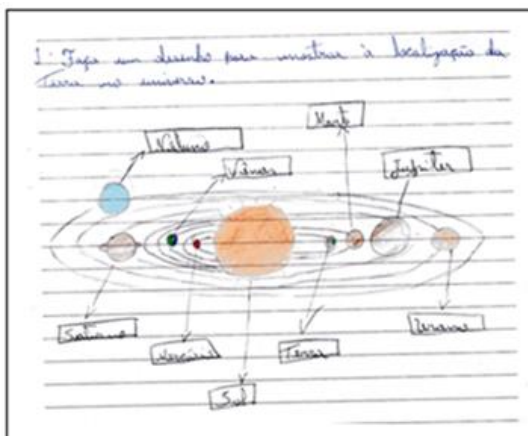 1. Faça um desenho para mostrar à localização da
Terra no universo.
Netuno
Marte
Vênus
Júpiter
Saturno
Mercúrio
Terra
Urano
Sol